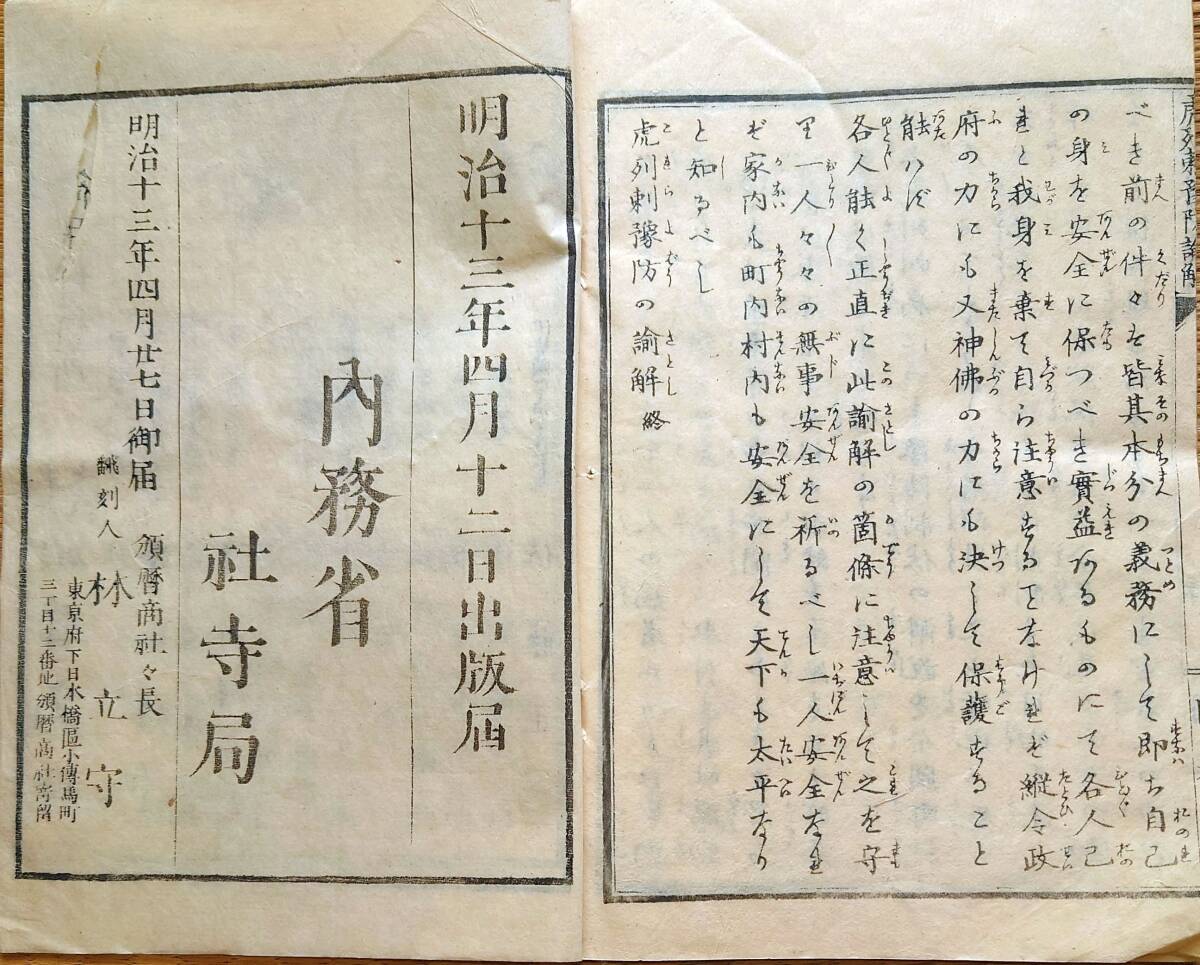 べき前の件々は皆其本分の義務にして即ち自己
の身を安全に保つべき實益あるものにて各人己
れと我身を棄て自ら注意することなければ縱令政
府の力にも又神佛の力にも決して保護すること
能はず
各人能く正直に此諭解の箇條に注意して之を守
り一人々々の無事安全を祈るべし一人安全なれ
ば家内も町内村内も安全にして天下も太平なり
と知るべし
虎列剌豫防の諭解 終
明治十三年四月十二日出版届
內務省
社寺局
明治十三年四月廿七日御届
頒曆商社々長
飜刻人 林立守
東京府下日本橋區小傳馬町
三丁目十二番地頒曆商社寄留